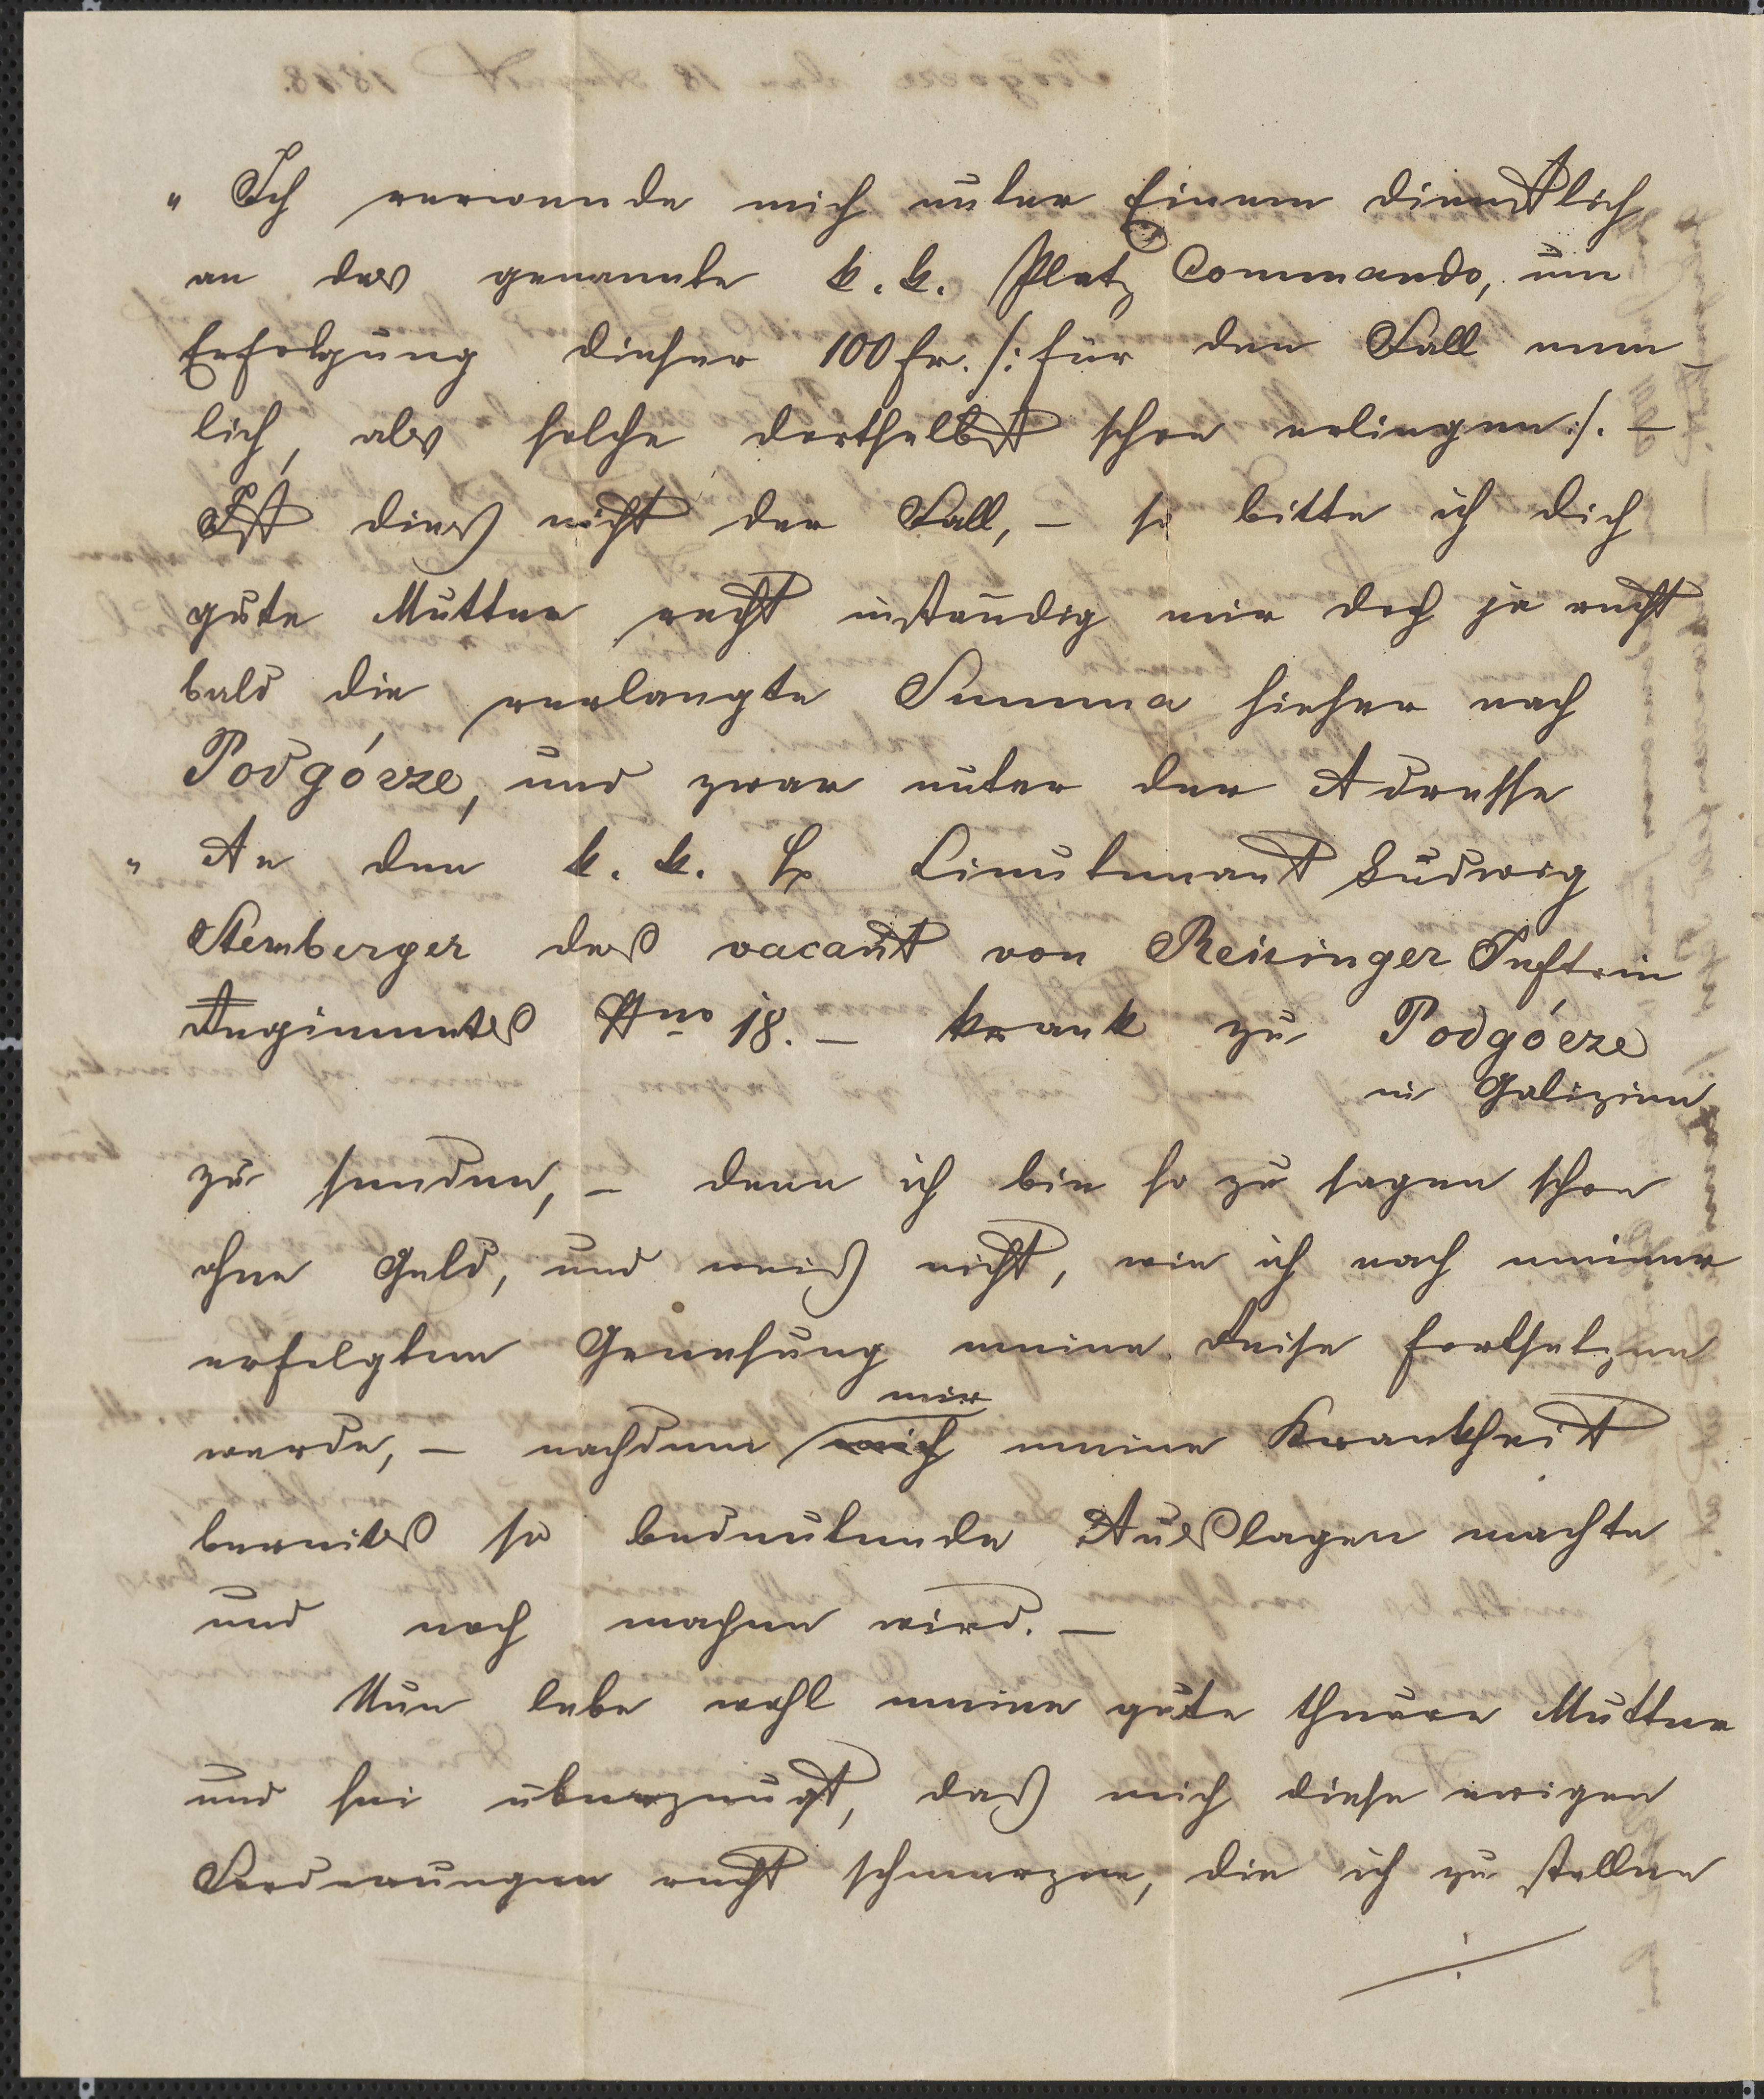 " Ich verwende mich unter Einem dienstlich
an das genannte k. k. Platz Commando, um
Erfolgung dieser 100 fr. /: für den Fall nem-
lich, als solche dorthselbst schon erliegen :/. —
Ist dieß nicht der Fall, — so bitte ich dich
gute Mutter recht inständig mir doch ja recht
bald die verlangte Summa hieher nach
Podgórze, und zwar unter der Adresse
" An den k. k. H Lieutenant Ludwig
Sternberger des vacant von Reisinger Inftrie
Regimentes No 18. — krank zu Podgórze
in Galizien
zu senden, — denn ich bin so zu sagen schon
ohne Geld, und weiß nicht, wie ich nach meiner
erfolgten Genesung meine Reise fortsetzen
mir
werde, — nachdem mich meine Krankheit
bereits so bedeutende Auslagen machte
und noch machen wird. —
Nun lebe wohl meine gute theure Mutter
und sei überzeugt, daß mich diese ewigen
Forderungen recht schmerzen, die ich zu stellen
./.